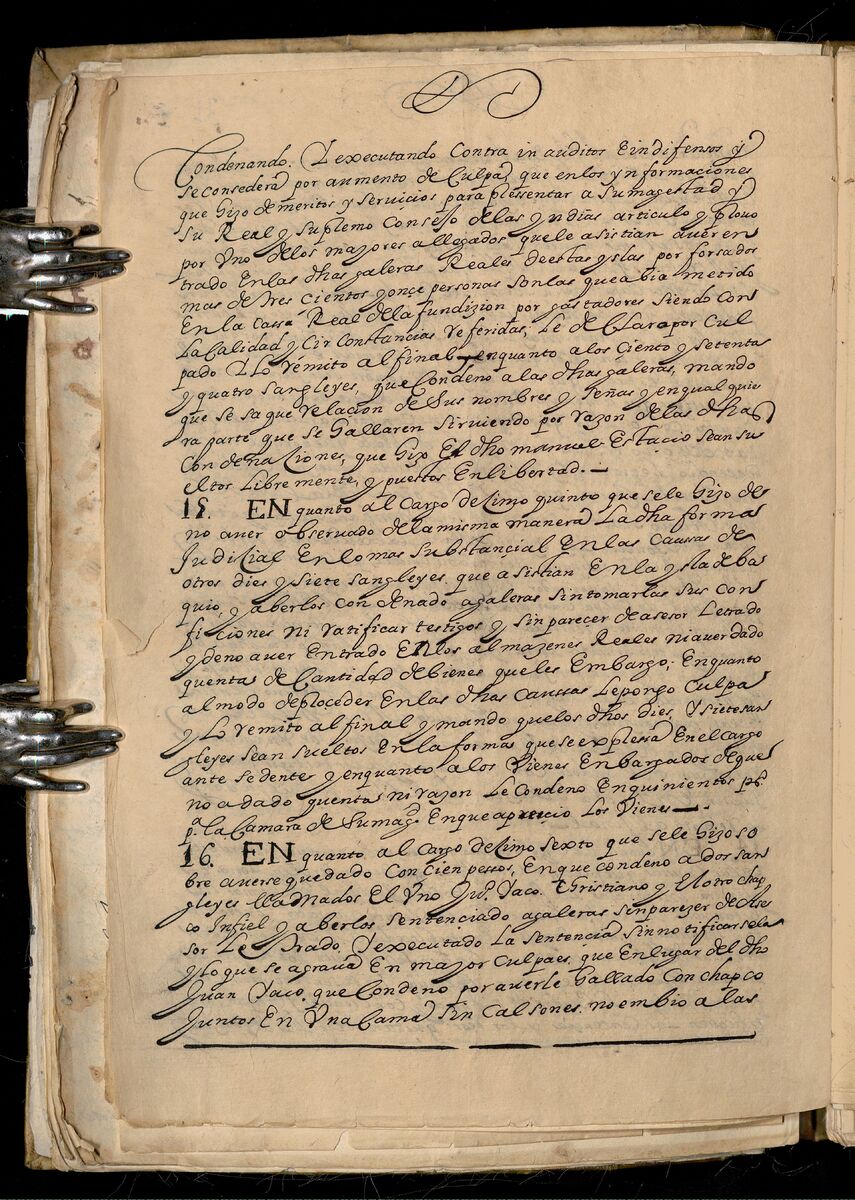 Condenando. Y executando Contra in auditos E indifensos y
se consedera por aumento de Culpa, que en los ynformaciones
que Hizo de meritos y servicios para pressentar a Su magestad y
su Real y supremo Consejo de las yndias articulo y provo
por Vno de los mayores allegados que le asistian aver en
trado En las dhas galeras Reales de estas yslas por forsados
mas de tres cientos y onçe personas son las que abia metido
En la Cassa Real de la fundizion por gastadores siendo Con
La Calidad y Cir Constancias referidas; Le de Claro por Cul
pado Y Lo remito al final y enquanto a los Ciento y setenta
y quatro sangleyes, que Condeno a las dhas galeras, mando
que se saque relacion de Sus nombres y señas y en qual quie
ra parte que se Hallaren sirviendo por razon de las dhas
Condenaciones, que Hizo El dho manuel Estacio sean su
eltos Libre mente, y puestos En libertad.
15. EN quanto al Cargo deCimo quinto que se le Hizo de
no aver observado de la misma manera La dha forma
Judicial En lo mas substancial En las causas de
otros dies y siete sangleyes, que asistian En la ysla de ba
quio, y aberlos condenado a galeras sin tomarlas sus con
ficiones ni ratificar testigos y, sin parecer de asesor Letrado
y de no aver Entrado En los almazenes Reales ni aver dado
quenta de Cantidad de bienes que les Embargo; Enquanto
al modo de proceder En las dhas caussas Le pongo Culpa
y Lo remito al final y mando que los dhos dies Y siete san
gleyes sean sueltos En la forma que se expressa En el cargo
ante sedente y enquanto a los Vienes Enbargados de que
no a dado quenta ni razon Le Condeno En quinientos ps.
pa. la Camara de Sumagd. En que aprecio Los Vienes.
16. EN quanto al Cargo deCimo sexto que se le Hizo so
bre averse quedado Con Cien pessos, En que condeno a dos san
gleyes llamados El Vno Juo. Yaco. Christiano y El otro chap
co Infiel y aberlos sentenciado a galeras sin parezer de Ases
sor Letrado, Y executado La sentencia sin notificarsela
y lo que se agrava En mayor Culpa es, que En lugar del dho
Juan Yaco, que Condeno por averle Hallado Con chapco
Juntos En Vna Cama sin Calsones, no embio a las